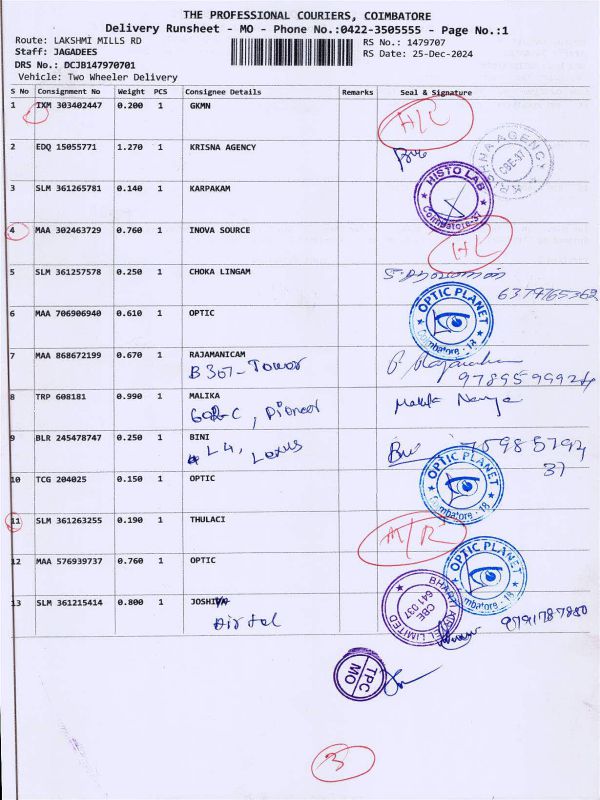 THE PROFESSIONAL COURIERS, COIMBATORE
Delivery Runsheet - MO - Phone No.:0422-3505555 - Page No.:1
Route: LAKSHMI MILLS RD
RS No.: 1479707
Staff: JAGADEES
RS Date: 25-Dec-2024
DRS No.: DCJB147970701
Vehicle: Two Wheeler Delivery
S No Consignment No Weight PCS Consignee Details Remarks Seal & Signature
1 IXM 303402447 0.200 1 GKMN
2 EDQ 15055771 1.270 1 KRISNA AGENCY
KRISHNA AGENCY CBE-37
3 SLM 361265781 0.140 1 KARPAKAM
HISTO LAB Coimbatore-37
4 MAA 302463729 0.760 1 INOVA SOURCE
5 SLM 361257578 0.250 1 CHOKA LINGAM
6379765362
6 MAA 706906940 0.610 1 OPTIC
OPTIC PLANET Coimbatore - 18
7 MAA 868672199 0.670 1 RAJAMANICAM
B 307 - Tower
9789599924
8 TRP 608181 0.990 1 MALIKA
Pioneer
9 BLR 245478747 0.250 1 BINI
L4, Lexus
10 TCG 204025 0.150 1 OPTIC
OPTIC PLANET Coimbatore - 18
11 SLM 361263255 0.190 1 THULACI
12 MAA 576939737 0.760 1 OPTIC
OPTIC PLANET Coimbatore - 18
13 SLM 361215414 0.800 1
Airtel
BHARTI AIRTEL LIMITED CBE 641 037
9791787880
TPC MO
3